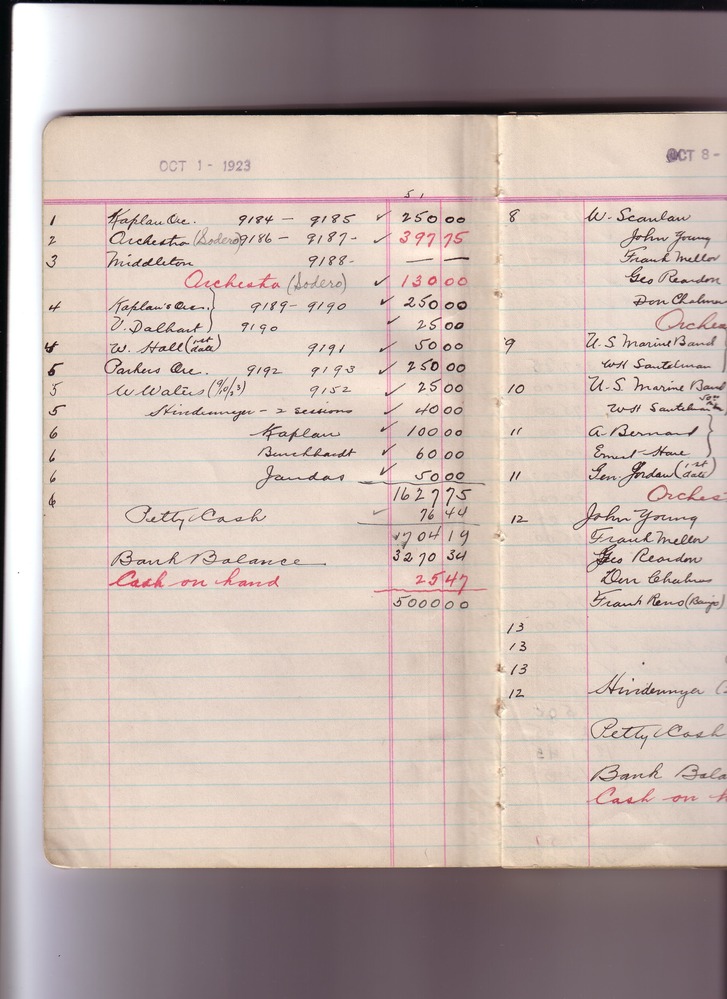 OCT 1 - 1923
1 Kaplan Orc. 9184 - 9185 ✓ 250 00
2 Orchestra (Sodero) 9186 - 9187 - ✓ 397 75
3 Middleton 9188 - — —
Orchestra (Sodero) ✓ 130 00
4 Kaplan's Orc. 9189 - 9190 ✓ 250 00
V. Dalhart 9190 25 00
4 W. Hall (1st date) 9191 ✓ 50 00
5 Parkers Orc. 9192 9193 ✓ 250 00
5 W Waters (9/10/23) 9152 ✓ 25 00
5 Hindermeyer - 2 sessions ✓ 40 00
6 Kaplan ✓ 100 00
6 Burckhardt ✓ 60 00
6 Jaudas ✓ 50 00
6 1627 75
Petty Cash ✓ 76 44
1704 19
Bank Balance 3270 34
Cash on hand 25 47
5000 00
OCT 8 -
8 W. Scanlan
John Young
Frank Mellor
Geo Reardon
Don Chalmer
Orches
9 U.S. Marine Band
WH Santelman
10 U.S. Marine Band
WH Santelman
11 A. Bernard
Ernest Hare
11 Gen. Jordan (1st date)
Orches
12 John Young
Frank Mellor
Geo Reardon
Don Chalmers
Frank Reno (Banjo)
13
13
13
12 Hindermyer
Petty Cash
Bank Bala
Cash on h